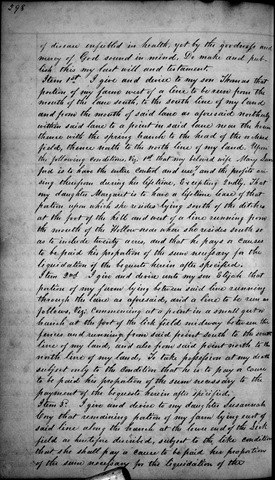 298
of disease enfeebled in health, yet by the goodness and
mercy of God sound in mind, Do make and pub-
lish this my last will and testament.
Item 1st I give and devise to my son Thomas that
portion of my farm west of a line to be run from the
mouth of the lane south, to the south line of my land
and from the mouth of said lane as aforesaid northerly
within said lane to a point in said lane near the house
thence with the spring branch to the head of the
field, thence north to the north line of my land. Upon
the following conditions, Viz, 1st that my beloved wife Mary
is to have the entire control and use, and the profits
arising therefrom during her lifetime, Excepting 2ndly, That
my daughter Margaret is to have a lifetime lease of that
portion upon which she resides lying south of the ditches
at the foot of the hill and west of a line running from
the mouth of the Hollow near where she resides south so
as to include twenty acres, and that he pays or causes
to be paid his proportion of the sum necessary for the
liquidation of the bequests herein after specified.
Item 2nd I give and devise unto my son Elijah that
portion of my farm lying between said line running
through the lane as aforesaid, and a line to be run as
follows, Viz; Commencing at a point in a small gut or
branch at the foot of the field midway between the
fences and running from said point south to the south
line of my land, and also from said point north to the
north line of my land, To take possession at my death
subject only to the condition that he is to pay or cause
to be paid his proportion of the sum necessary to the
payment of the bequests herein after specified.
Item 3d I give and devise to my daughter Susannah
that remaining portion of my farm lying east of
said line along the branch at the lower end of the
field as heretofore described, subject to the like condition
that she shall pay or cause to be paid her proportion
of the sum necessary for this liquidation of the